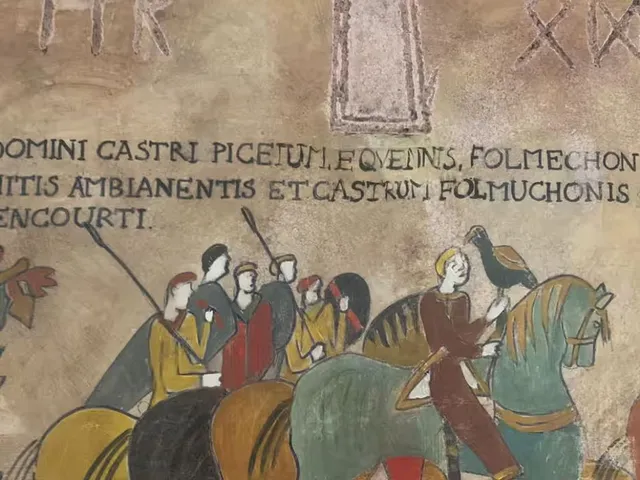 ITR XIX
DOMINI CASTRI PICETUM, EQVENNIS, FOLMECHON
NITIS AMBIANENTIS ET CASTRUM FOLMUCHONIS
ENCOURTI.